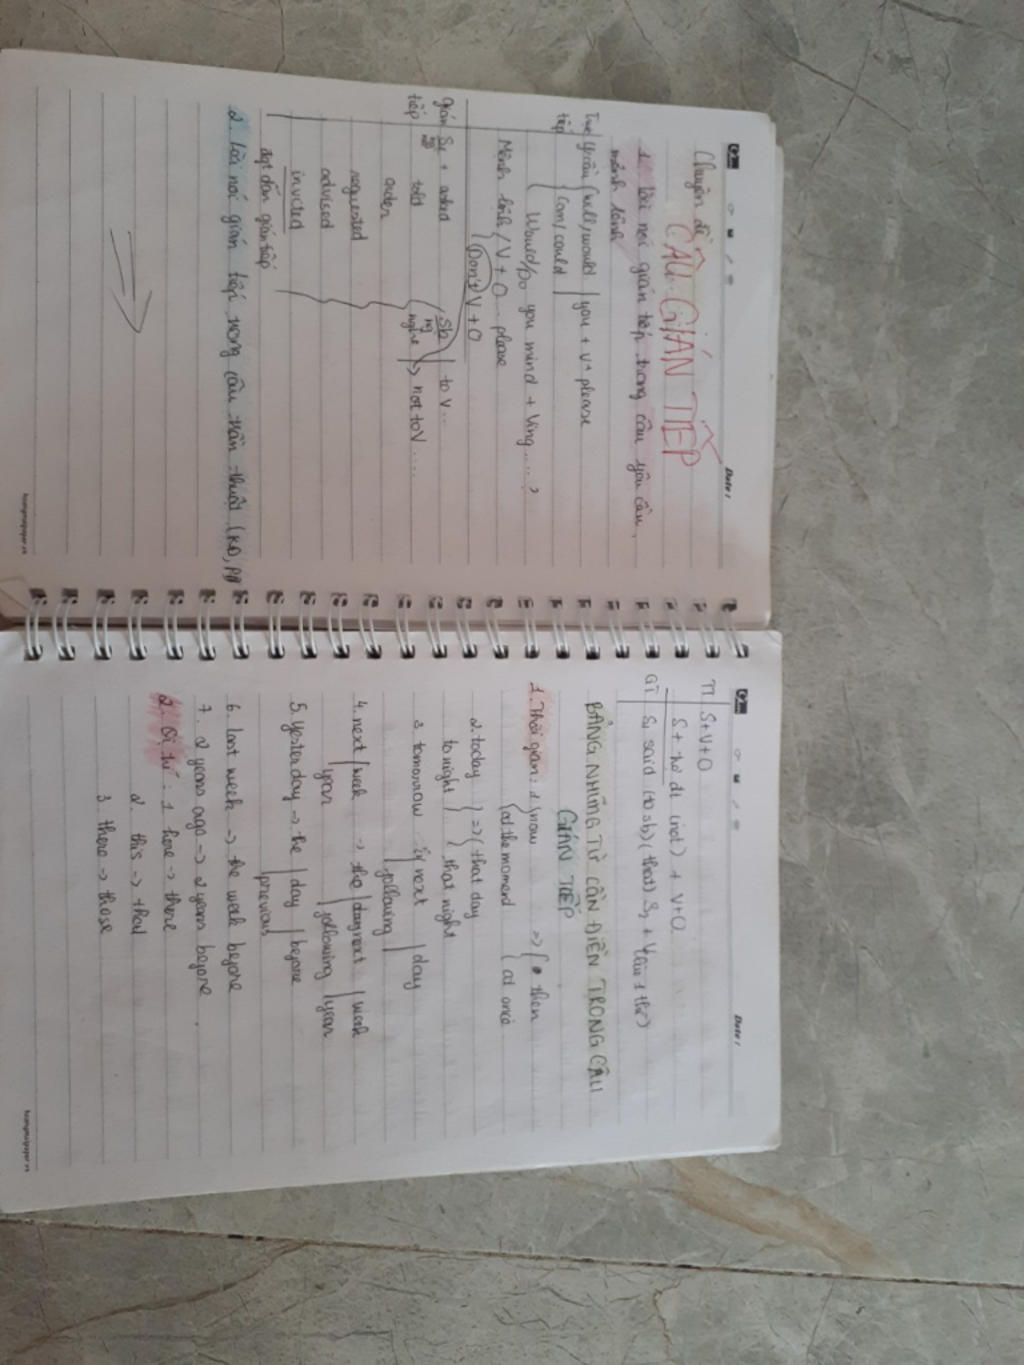 Date:
Chuyên đề
CÂU GIÁN TIẾP
1. Lời nói gián tiếp trong câu yêu cầu,
mệnh lệnh
Trực yêu cầu (will/would | you + V + please
tiếp (Can/could
Would/Do you mind + Ving.....?
Mệnh lệnh / V + O... please
Don't V + O
gián S1 + asked Sb to V...
tiếp told ng nghe -> not to V.....
order
requested
advised
invited
đạt dẫn gián tiếp
2. Lời nói gián tiếp trong câu trần thuật (KĐ, PĐ
hoangmaipaper.vn
Date:
TT S+V+O
S + trợ đt (not) + V+O.
GT S1 said (to sb) (that) S2 + V lùi 1 thì)
BẢNG NHỮNG TỪ CẦN ĐIỀN TRONG CÂU
GIÁN TIẾP
1. Thời gian: 1 now => then
at the moment at once
2. today => that day
tonight that night
3. tomorrow next day
following
4. next week -> the day next week
year following year
5. yesterday -> the day before
previous
6. last week -> the week before
7. 2 years ago -> 2 years before.
2. Vị trí: 1 here -> there
2. this -> that
3 there -> those
hoangmaipaper.vn